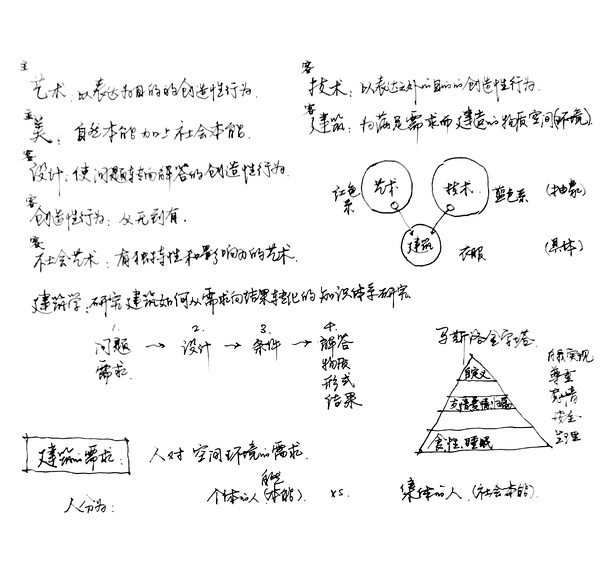 主
艺术：以表达为目的的创造性行为.
主
美：自然本能加上社会本能.
客
设计：使问题转向解答的创造性行为.
客
创造性行为：从无到有.
客
社会艺术：有独特性和影响力的艺术.
客
技术：以表达之外为目的的创造性行为.
客
建筑：为满足需求而建造的物质空间(环境).
红色系
艺术
技术
蓝色系
(抽象)
建筑
衣服
(具体)
建筑学：研究建筑如何从需求向结果转化的知识体系研究.
1. 2. 3. 4.
问题 → 设计 → 条件 → 解答
需求. 物质
形式
结果
马斯洛金字塔.
自我实现
尊重
安全
生理
自定义
食.性.睡眠
建筑的需求：
人对空间环境的需求.
人分为：
个体的人(本能). vs. 集体的人.(社会本能).